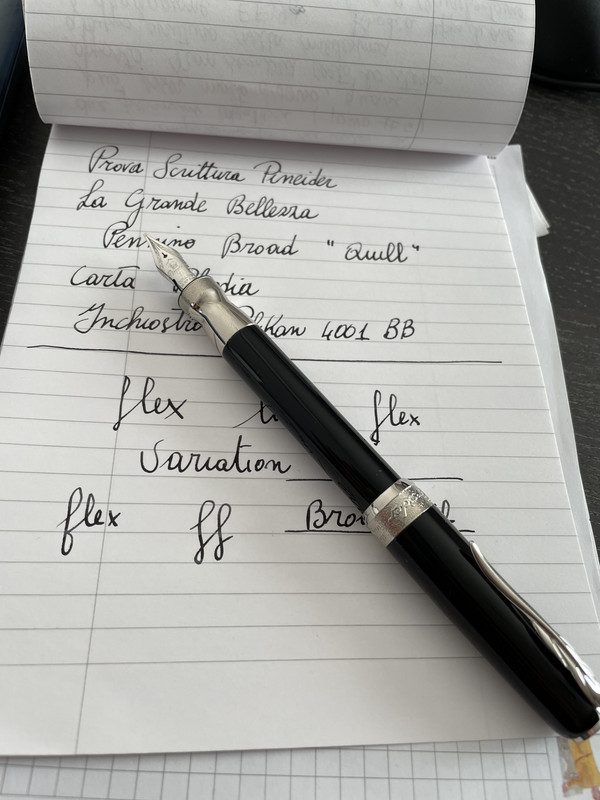 Prova Scrittura Pineider
La Grande Bellezza
Pennino Broad "Quill"
Carta
Inchiostro Pelikan 4001 BB
flex flex
Variation
flex ff